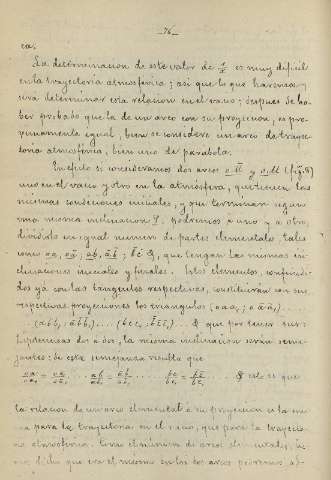 _76_
ca.
La determinacion de este valor de es muy dificil
en la trayectoria atmosferica; asi que lo que haremos,
será determinar esta relacion en el vacio; despues de ha-
ber probado que la de un arco con su proyeccion, es pro-
ximamente igual, bien se considere un arco de trayec-
toria atmosferica, bien uno de parabola.
En efecto si consideramos dos arcos y (fig.
uno en el vacio y otro en la atmosfera, que tienen las
mismas condiciones iniciales, y que terminan segun
una misma inclinacion podremos á uno y a otro,
dividirlo en igual numero de partes elementales tales
como que tengan las mismas in-
clinaciones iniciales y finales. Estos elementos, confundi-
dos yá con las tangentes respectivas, constituirán con sus
respectivas proyecciones los triangulos
que por tener sus
hipotenusas dos a dos, la misma inclinacion serán seme-
jantes: de esta semejanza resulta que
esto es que
la relacion de un arco elemental á su proyeccion es la mis-
ma para la trayectoria en el vacio, que para la trayecto-
ria atmosferica. Como el numero de arcos elementales,
dicho que era el mismo en los dos arcos podremos,